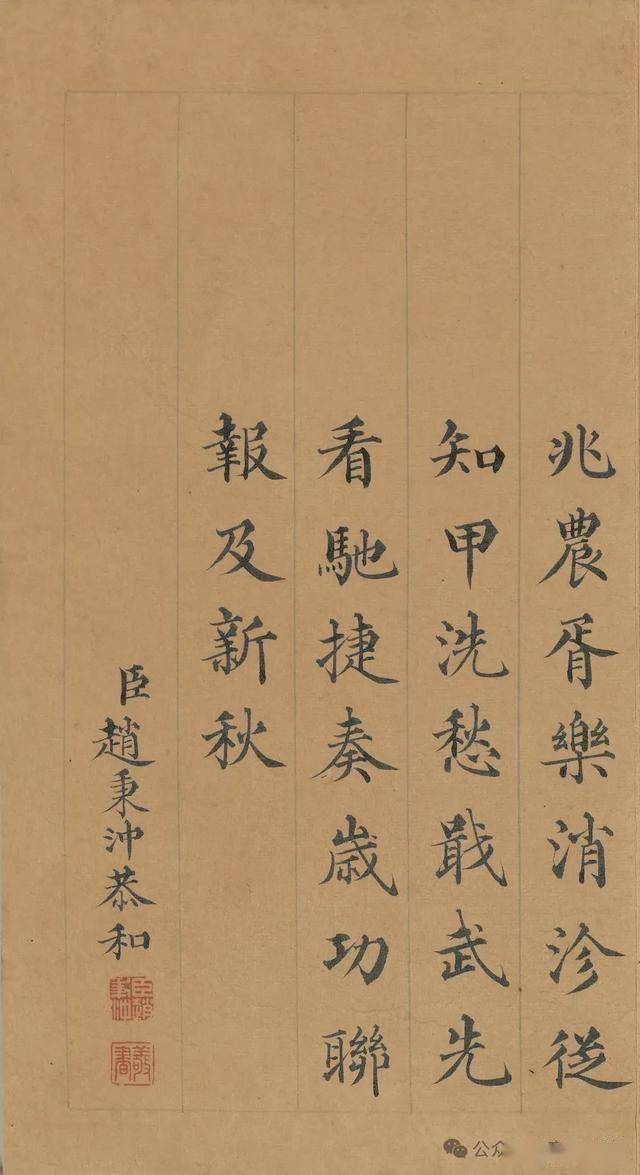 兆農胥樂消沴從
知甲洗愁戢武先
看馳捷奏歲功聯
報及新秋
臣趙秉沖恭和
公众